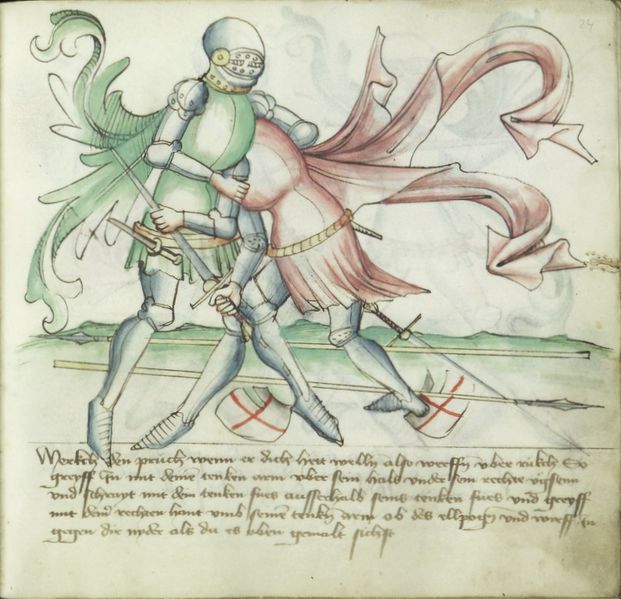 24
Merckh den pruch wenn er dich hett welln also werffn vber rukch So
greyff Im mit deine tenken arm vber sein hals vnder sein rechte vgssenn
vnd schreyt mit dem tenken fues ausserhalb seins tenken fues vnd greyff
mit deine rechten hant vmb seinen tenken arm ob des ellpogn vnd wirff In
gegen die nyder als du es oben gemalt sichst